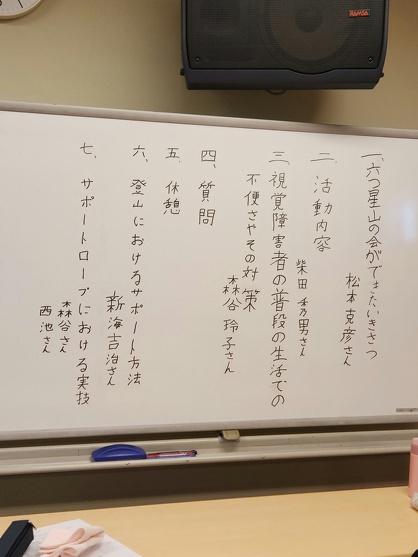 一、六つ星山の会ができたいきさつ
松本克彦さん
二、活動内容
柴田秀男さん
三、視覚障害者の普段の生活での
不便さやその対策
森谷玲子さん
四、質問
五、休憩
六、登山におけるサポート方法
新海吉治さん
七、サポートロープにおける実技
森谷さん
西池さん
RAMSA